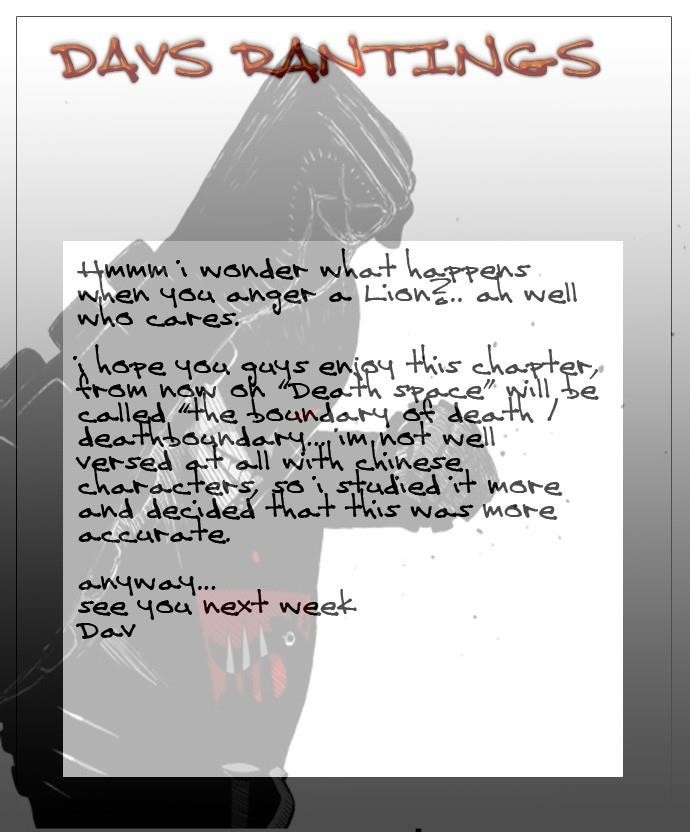 DAVS RANTINGS
Hmmm i wonder what happens
when you anger a Lion?.. ah well
who cares.
i hope you guys enjoy this chapter,
from now on "Death space" will be
called "the boundary of death /
deathboundary... im not well
versed at all with chinese
characters, so i studied it more
and decided that this was more
accurate.
anyway...
see you next week
Dav